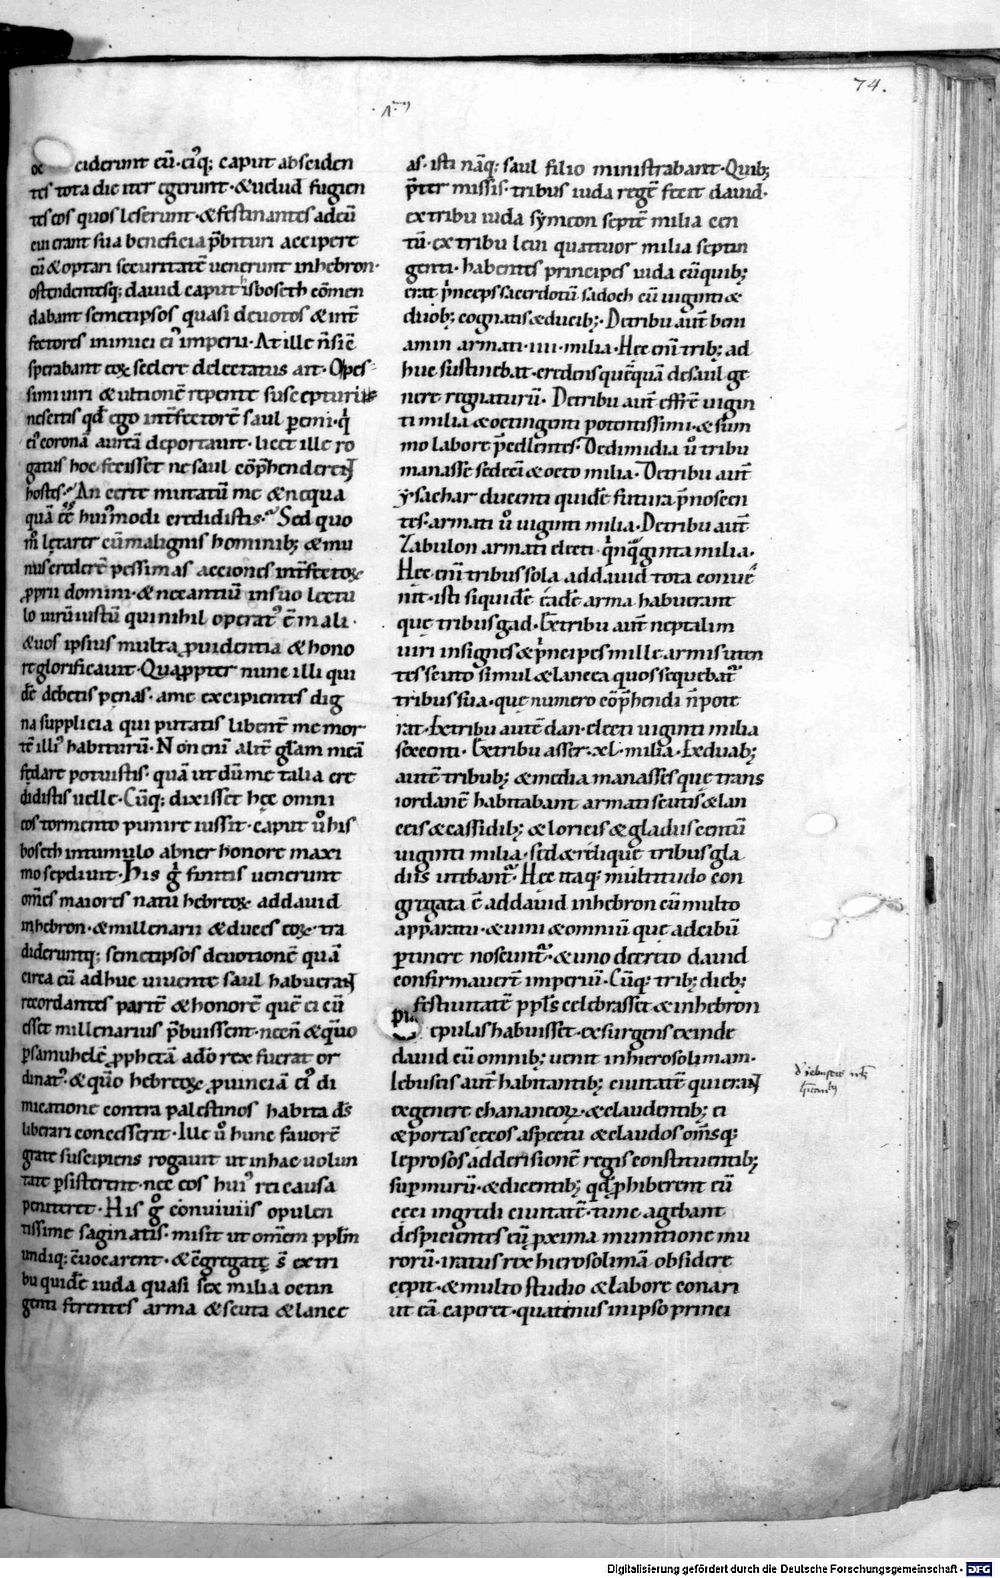 74.
oc ciderunt eū·eiꝰq; caput absciden
tes tota die iter egerunt·&uelud fugien
tes eos quos leserunt·&festinantes adeū
cui erant sua beneficia p̄bituri accipere
eū&optari securitatē uenerunt inhebron·
ostendentesq; dauid caput isboseth cōmen
dabant semetipsos quasi deuotos &int̄
fectores inimici eiꝰ imperii·At ille n̄ sic̄
sperabant eoꝝ scelere delectatus ait·O pes
simi uiri &ultionē repente suscepturi
nescitis qd̄ ego int̄fectorē saul pemi·q̇
eiꝰ coronā aureā deportauit·licet ille ro
gatus hoc fecisset ne saul cōp̄henderent
hostes·An certe mutatū me &nequa
quā ēē huiꝰmodi credidistis·Sed quo
m̊ lętarer cū malignis hominib; &mu
nus crederē pessimas acciones int̄fectoꝝ
ꝓprii domini·&necantiū insuo lectu
lo uirū iustū qui nihil operatꝰ ē mali·
&uos ipsius multa ꝓuidentia &hono
re glorificauit·Quaꝓpter nunc illi qui
dē debetis pęnas·ame excipientes dig
na supplicia qui putatis libent̄ me mor
tē illiꝰ habiturū·Non eni alit̄ gl̄am meā
fędare potuistis·quā ut dū me talia cre
didistis uelle·Cūq; dixisset hęc omni
eos tormento punire iussit·caput ů his
boseth intumulo abner honore maxi
mo sepeliuit·His ġ finitis uenerunt
om̄es maiores natu hebreoꝝ addauid
inhebron·&millenarii &duces eoꝝ·tra
dideruntq; semetipsos deuotionē quā
circa eū adhuc uiuente saul habuerant
recordantes parit̄ &honorē quē ei cū
esset millenarius p̄buissent·necn̄ &quō
ꝑsamuhelē ꝓphetā adō rex fuerat or
dinatꝰ·&quō hebreoꝝ ꝓuinciā eiꝰ di
micatione contra palestinos habita ds̄
liberari concesserit·Ille ů hunc fauorē
grate suscipiens rogauit ut inhac uolun
tate ꝑsisterent·nec eos huiꝰ rei causa
peniteret·His ġ conuiuiis opulen
tissime saginatis·misit ut om̄em ppl̄m
undiq; cuocarent·&c̄gregatę s̄ ex tri
bu quidē iuda quasi sex milia octin
genti ferentes arma &scuta &lance
as·isti nāq; saul filio ministrabant·Quib;
p̄ter missis·tribus iuda regē fecit dauid·
ex tribu uida symeon septē milia cen
tū·ex tribu leui quattuor milia septin
genti·habentes principes iuda cū quib;
erat p̄nceps sacerdotū sadoch cū uiginti&
duob; cognatis&ducib;·Detribu aut̄ beni
amin armati·iiii·milia·Hęc eni trib; ad
huc sustinebat·credens quēquā desaul ge
nere regnaturū·Detribu aut̄ effrē uigin
ti milia &octingenti potentissimi·&sum
mo labore p̄cellentes·Dedimidia ů tribu
manasse sedeci&octo milia·Detribu aut̄
ysachar ducenti quidē futura p̄noscen
tes·armati ů uiginti milia·Detribu aut̄
Zabulon armati electi·qͥnqͣginta milia·
Hęc eni tribus sola addauid tota conue
nit·isti siquidē eadē arma habuerant
que tribus gad·Extribu aut̄ neptalim
uiri insignes&p̄ncipes mille armis uten
tes scuto simul&lancea quos sequebatͬ
tribus sua·quę numero cōp̄hendi n̄ pote
rat·Extribu autē dan·electi uiginti milia
sexcenti·Extribu asser·xl·milia·Exduab;
autē tribub; &media manasses quę trans
iordanē habitabant armati scutis&lan
ceis&cassidib; &loricis&gladiis centū
uiginti milia·sed&reliquę tribus gla
diis utebantͬ·Hęc itaq; multitudo con
gregata ē addauid inhebron cū multo
apparatu·&uini &omniū quę adcibū
ꝑtinere noscuntͬ·&uno decreto dauid
confirmauert imperiū·Cūq; trib; dieb;
festiuitatē ppl̄s celebrasset &inhebron
epulas habuisset·exsurgens exinde
dauid cū omnib; uenit inhierosolimam·
Iebuseis aut̄ habitantib; ciuitatē qui erant
exgenere chananeoꝝ·&claudentib; ei
&portas cecos aspectu &claudos om̄sq;
leprosos adderisionē regis constituentib;
suꝑmurū·&dicentib; qd̄ ꝓhiberent eū
ceci ingredi ciuitatē·tunc agebant
despicientes eū ꝓxima munitione mu
rorū·iratus rex hierosolimā obsidere
cepit·&multo studio &labore conari
ut eā caperet·quatinus inipso princi
Digitalisierung gefördert durch die Deutsche Forschungsgemeinschaft - DFG